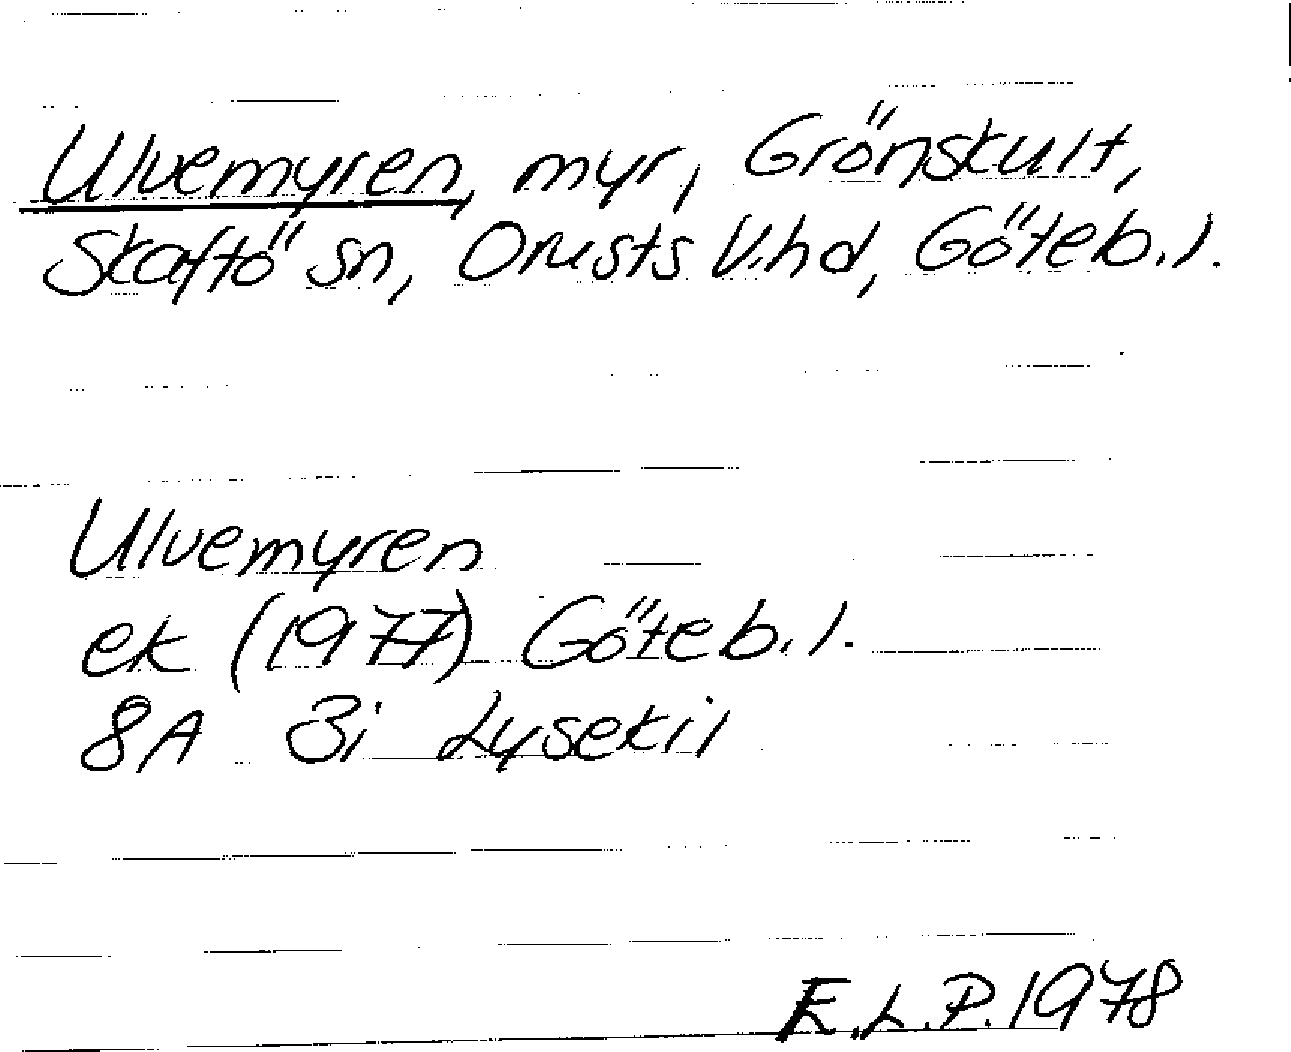 Ulvemyren, myr, Grönskult,
Skaftö sn, Orusts V.hd, Göteb.l.
Ulvemyren
ek (1977) Göteb.l.
8A 3i Lysekil
E.L.P. 1978